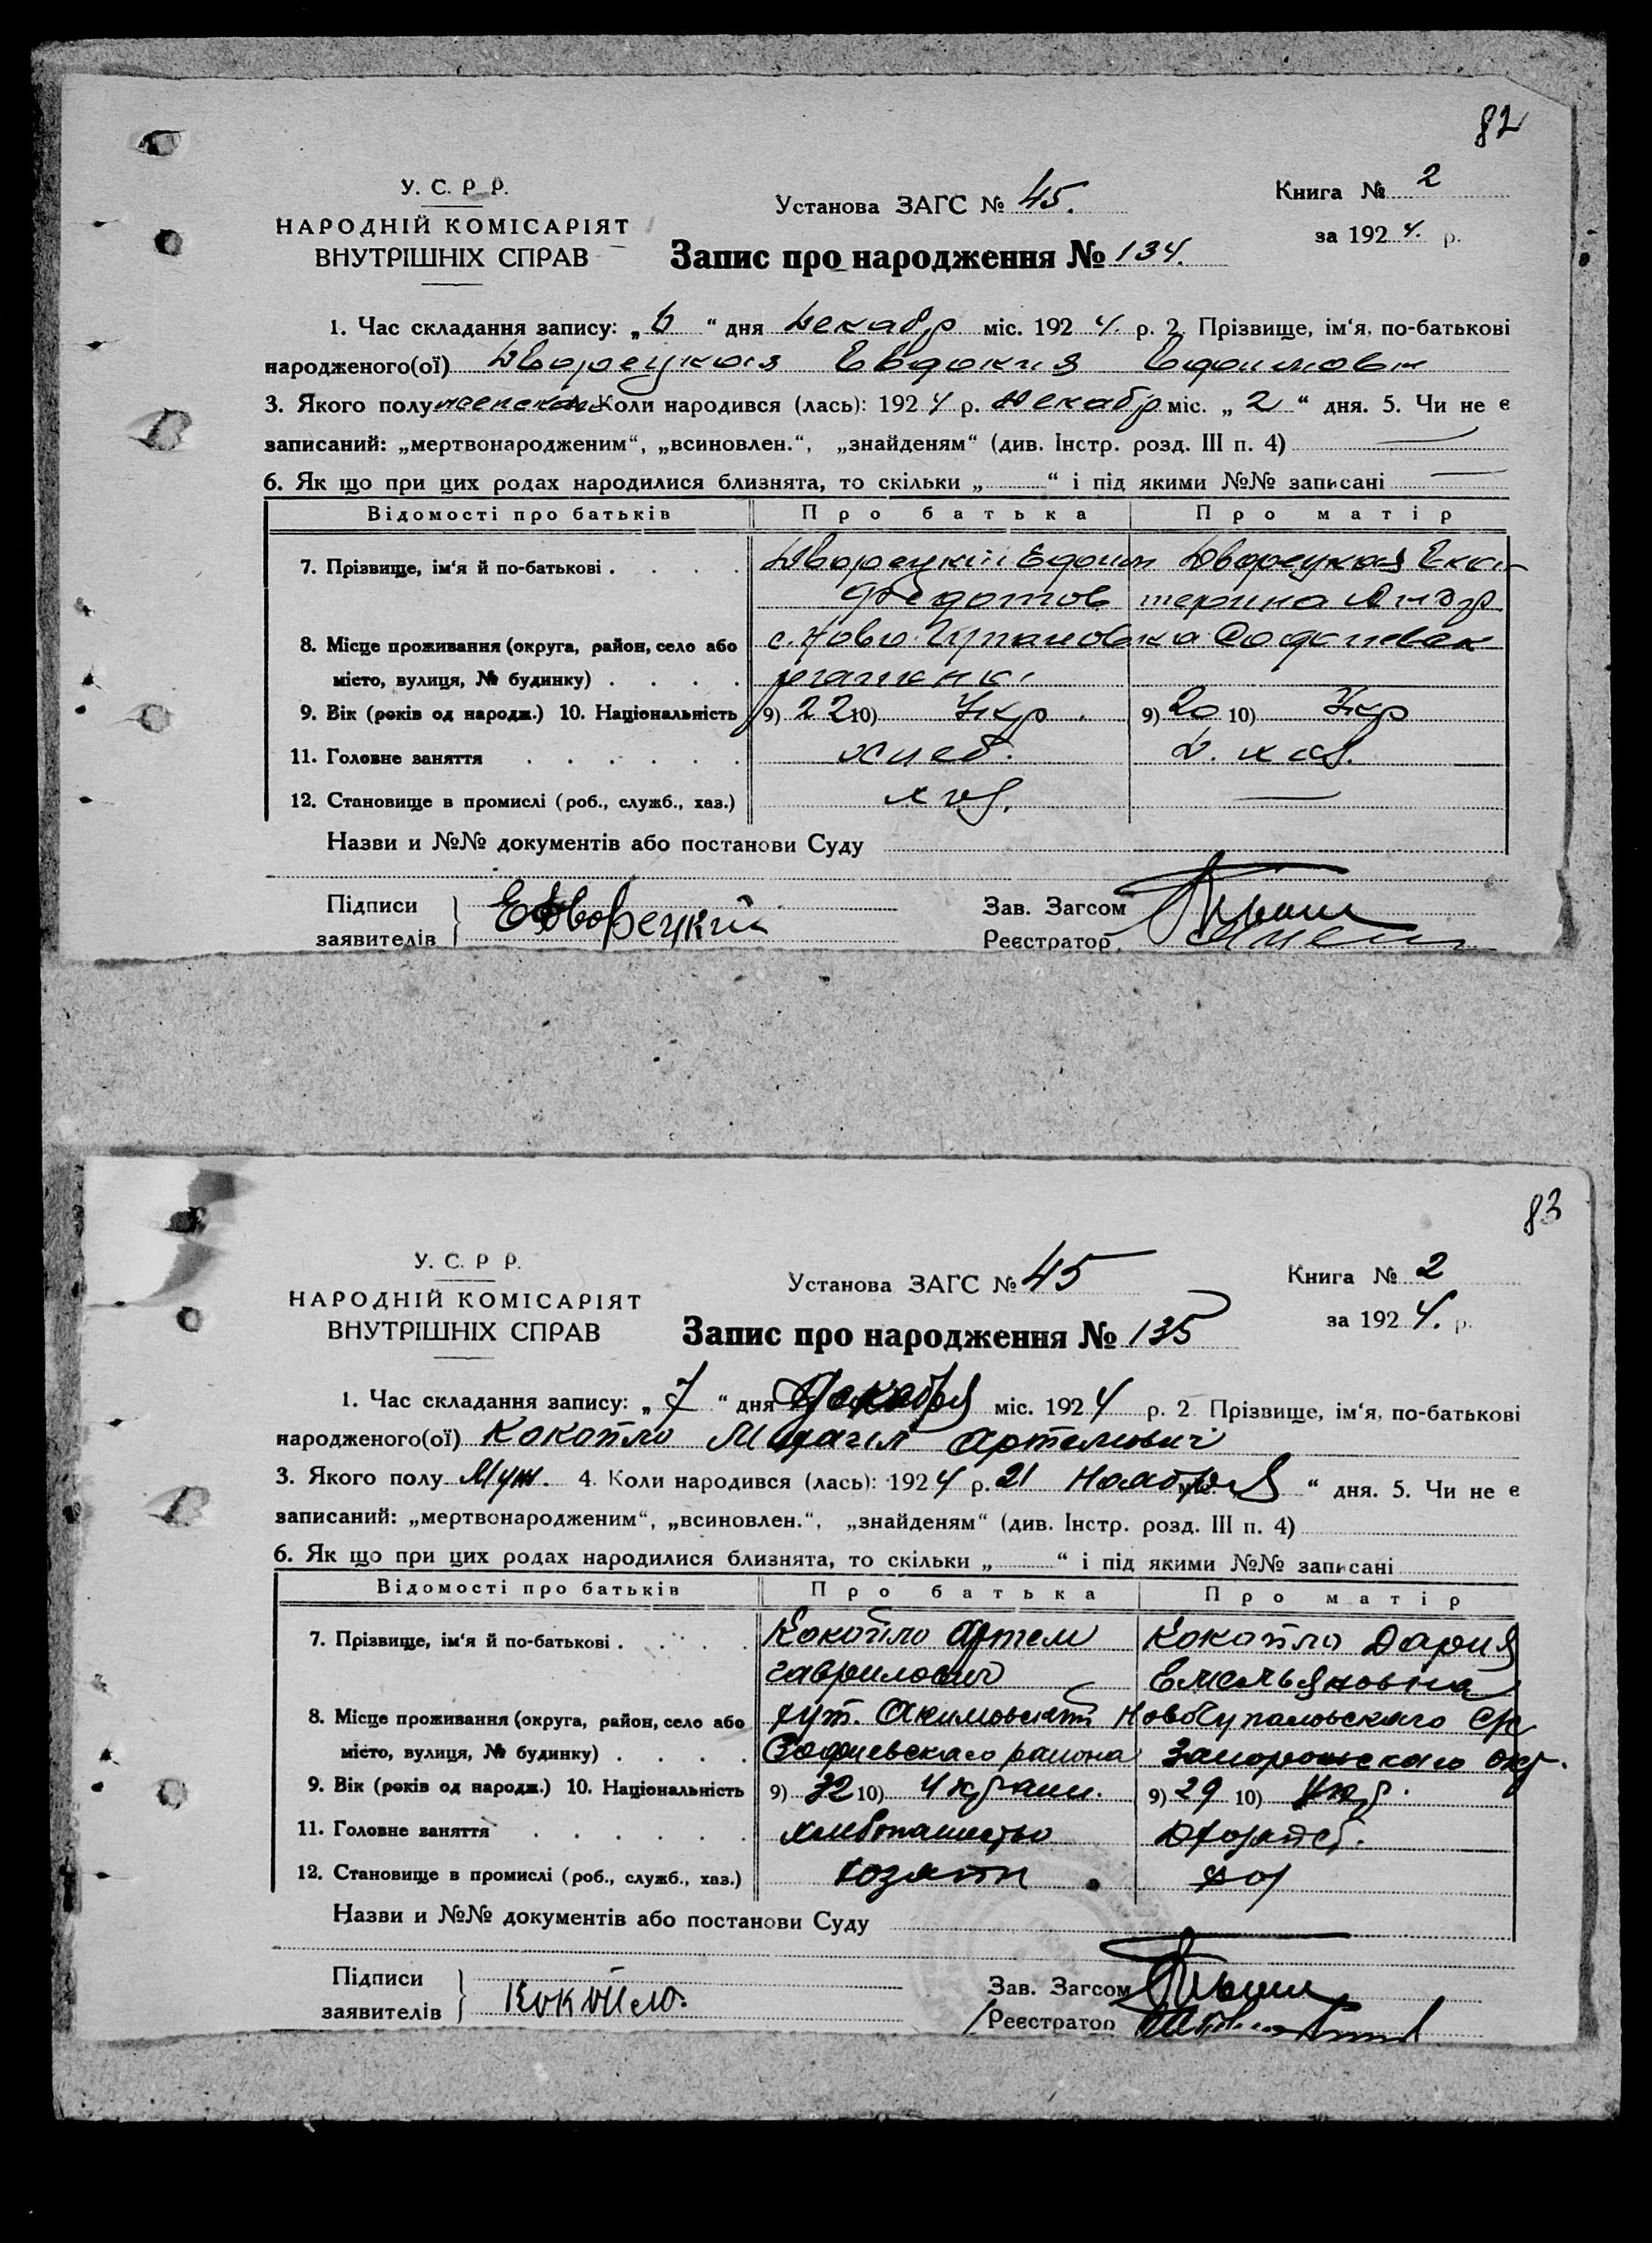 82
У. С. Р. Р.
НАРОДНІЙ КОМІСАРІЯТ
ВНУТРІШНІХ СПРАВ
Установа ЗАГС № 45.
Запис про народження № 134.
Книга № 2
за 1924. р.
1. Час складання запису: „ 6 “ дня Декабр міс. 1924. р. 2. Прізвище, ім‘я, по-батькові
народженого(ої) Дворецкая Евдокия
3. Якого полу женская Коли народився (лась): 1924 р. Декабр міс. „ 2 “ дня. 5. Чи не є
записаний: „мертвонародженим“, „всиновлен.“, „знайденям“ (див. Інстр. розд. III п. 4)
6. Як що при цих родах народилися близнята, то скільки „ “ і під якими №№ записані
Відомості про батьків Про батька Про матір
7. Прізвище, ім‘я й по-батькові . . . . Дворецкий Дворецкая Ека-
Федотов терина Андр
8. Місце проживання (округа, район, село або с. Ново Софиевск
місто, вулиця, № будинку) . . . .
9. Вік (років од народж.) 10. Національність 9) 22 10) Укр. 9) 20 10) Укр
11. Головне заняття . . . . . . хлеб. Д. хоз.
12. Становище в промислі (роб., служб., хаз.) хоз.
Назви и №№ документів або постанови Суду
Підписи
заявителів } ЕДворецкий
Зав. Загсом
Реєстратор
83
У. С. Р. Р.
НАРОДНІЙ КОМІСАРІЯТ
ВНУТРІШНІХ СПРАВ
Установа ЗАГС № 45
Запис про народження № 135
Книга № 2
за 1924. р.
1. Час складання запису: „ 7 “ дня Декабря міс. 1924 р. 2. Прізвище, ім‘я, по-батькові
народженого(ої) Кокотло Артемович
3. Якого полу Муж. 4. Коли народився (лась): 1924 р. 21 Ноября “ дня. 5. Чи не є
записаний: „мертвонародженим“, „всиновлен.“, „знайденям“ (див. Інстр. розд. III п. 4)
6. Як що при цих родах народилися близнята, то скільки „ “ і під якими №№ записані
Відомості про батьків Про батька Про матір
7. Прізвище, ім‘я й по-батькові . . . . Кокотло Артем Кокотло Дария
гаврилович Емельяновна
8. Місце проживання (округа, район, село або хут. с/с
місто, вулиця, № будинку) . . . . Софиевскаго района Запорожскаго окр.
9. Вік (років од народж.) 10. Національність 9) 32 10) Украин. 9) 29 10) Укр.
11. Головне заняття . . . . . . хлебопашество
12. Становище в промислі (роб., служб., хаз.)
Назви и №№ документів або постанови Суду
Підписи
заявителів } Кокотло.
Зав. Загсом
Реєстратор